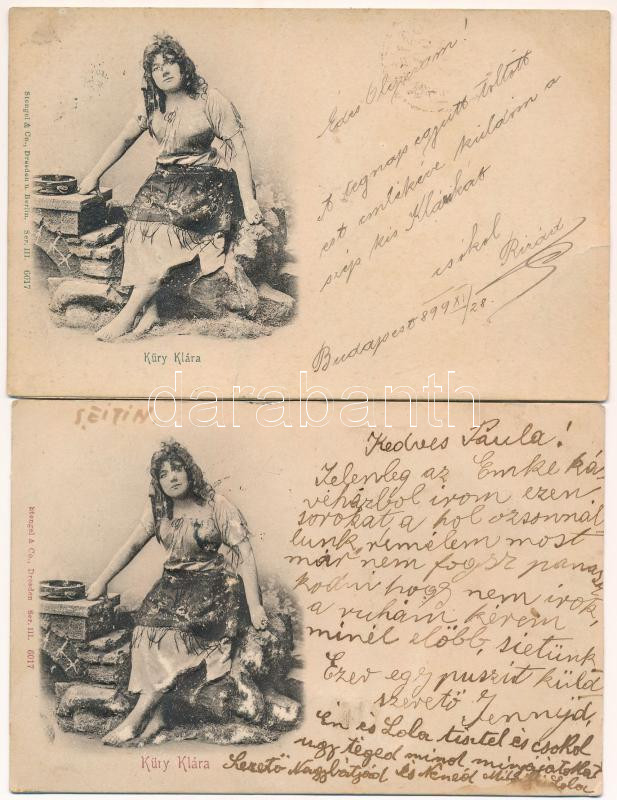 Stengel & Co., Dresden u. Berlin. Ser. III. 6017
Küry Klára
Édes
A tegnap együtt töltött
est emlékéve küldöm a
szép kis Klárikát
csókol
Budapest 899 XI/28.
darabanth
SEITIN
Stengel & Co., Dresden Ser. III. 6017
Küry Klára
Kedves Paula!
Jelenleg az Emke ká-
véházbol irom ezen
sorokat a hol ozsonnál
lunk, remélem most
már nem fogsz panasz
kodni hogy nem irok,
a ruhám kérem
minél előbb, sietünk
Ezer egy puszit küld
szerető Jennyd,
Én és Lola tisztel és csokol
ugy téged mind
Szerető Nagybátyád és Nenéd Lola